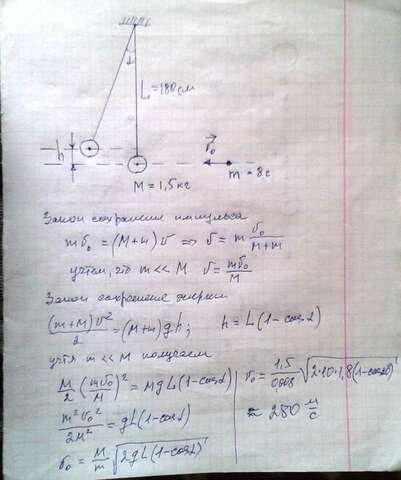 L=180см
α
h
v⃗₀
m=8г
M=1,5кг
Закон сохранения импульса
mv₀=(M+m)v ⇒ v=m v₀/(M+m)
учтем, что m<<M v=mv₀/M
Закон сохранения энергии
(m+M)v²/2=(M+m)gh; h=L(1-cosα)
учтя m<<M получаем
M/2(mv₀/M)²=MgL(1-cosα)
m²v₀²/2M²=gL(1-cosα)
v₀=M/m√2gL(1-cosα)
v₀=1,5/0,008√2·10·1,8(1-cosα)
≈280 м/с